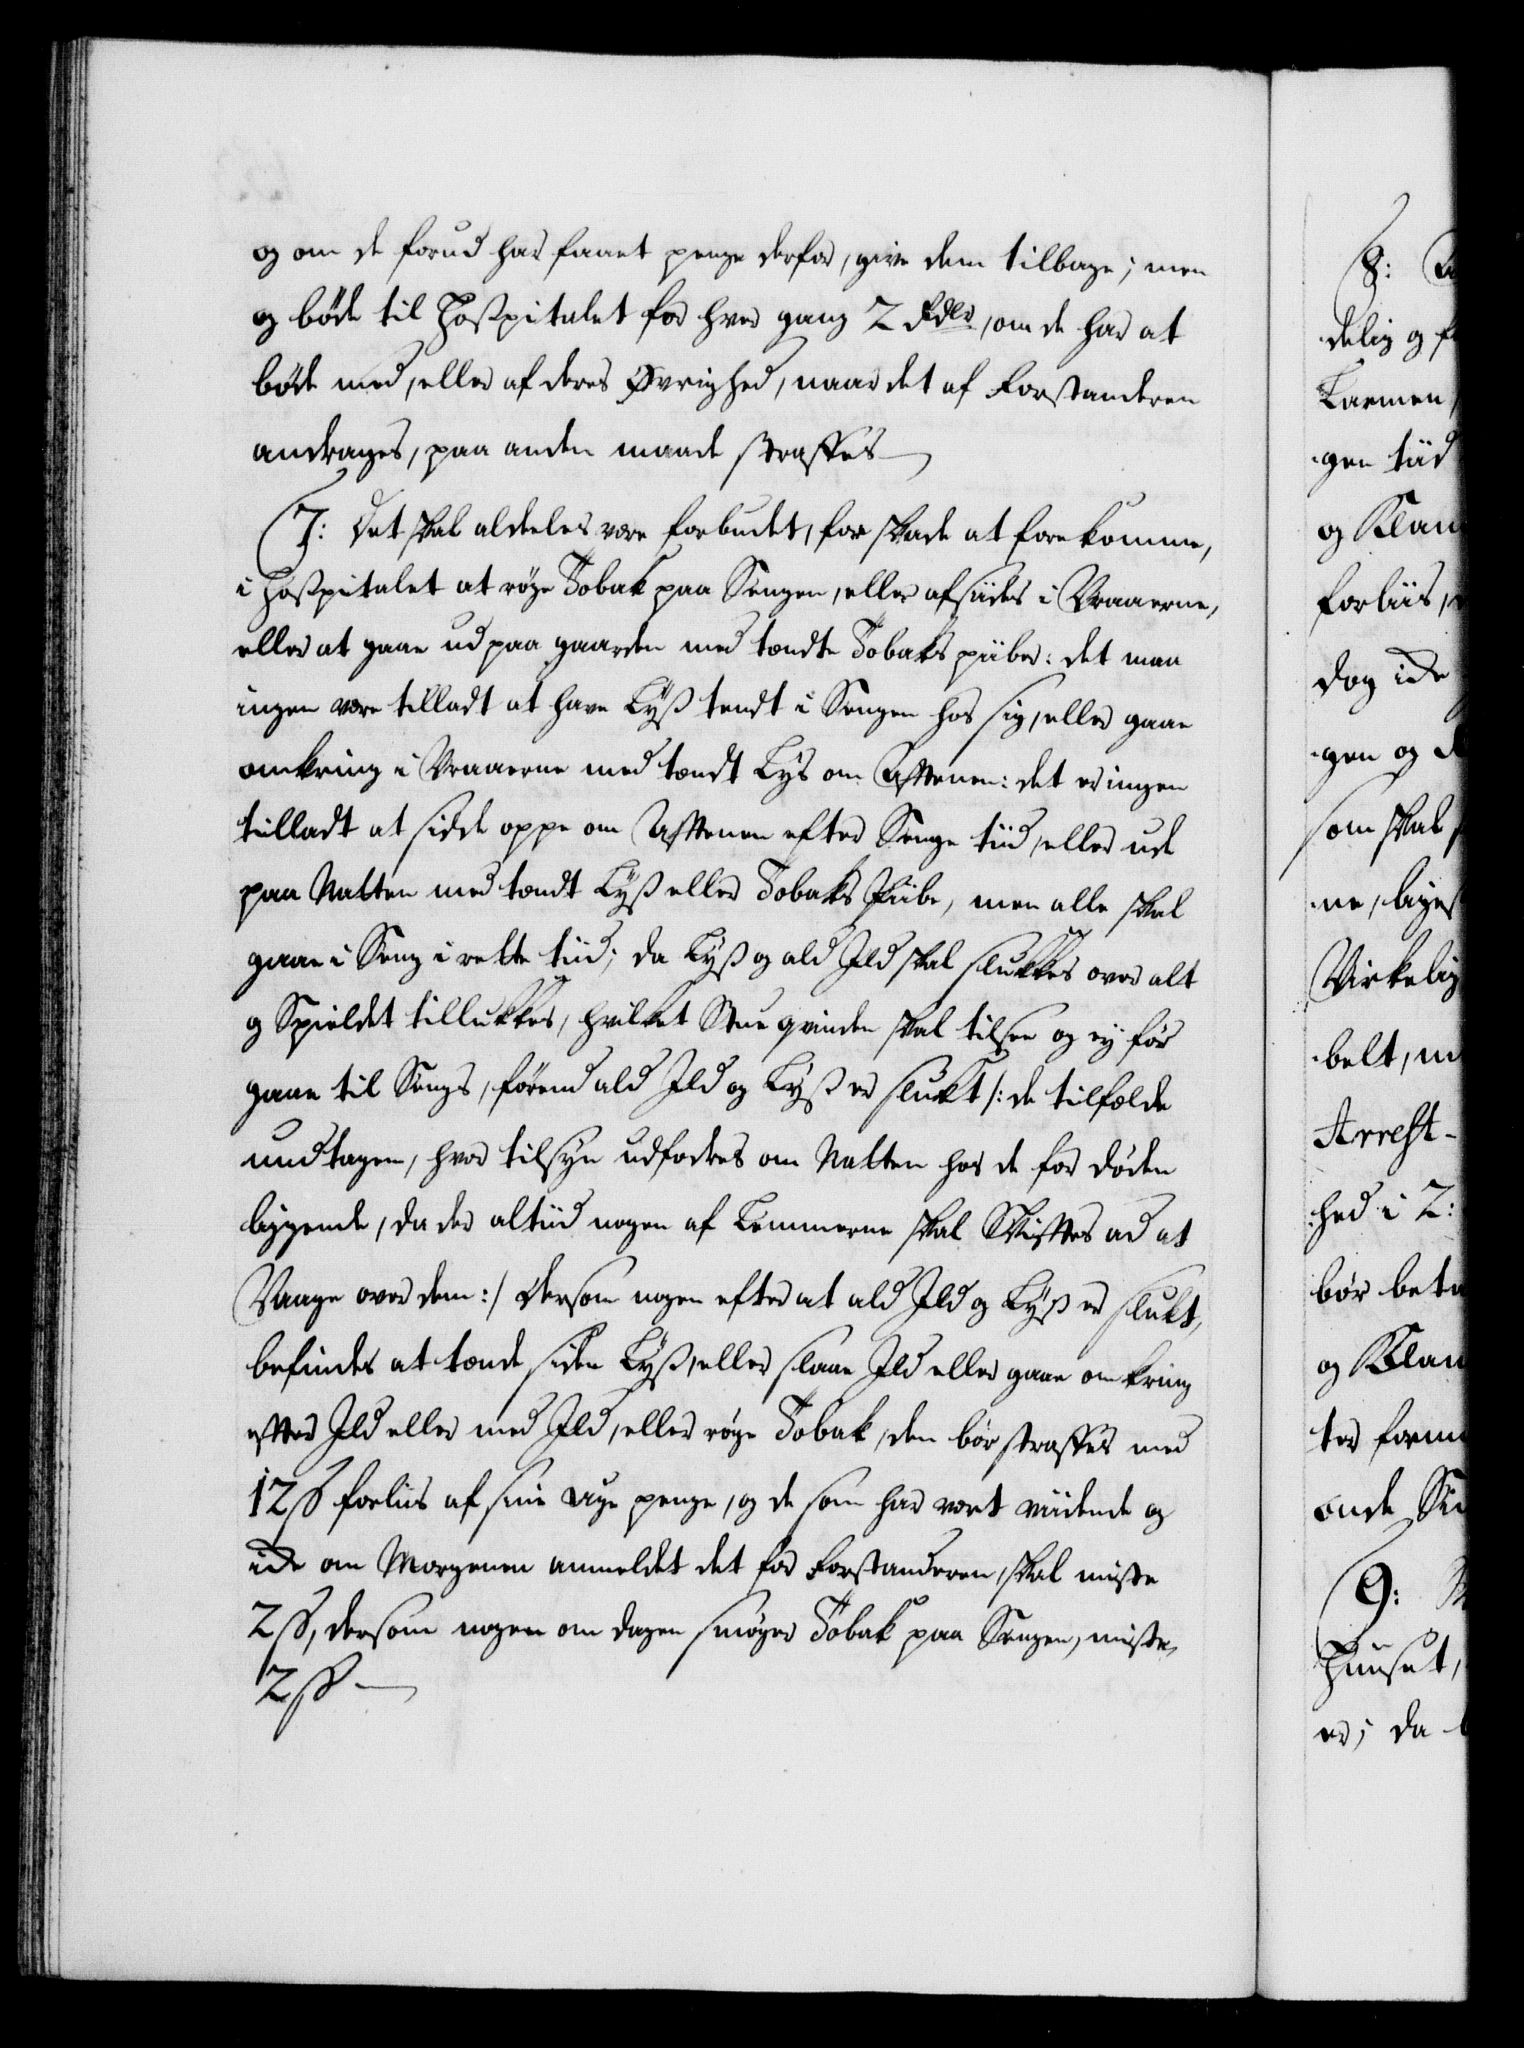 og om de forud har faaet penge derfor, give dem tilbage; men
og böde til Hospitalet for hver gang 2 Rdlr, om de har at
böde med, eller af deres Øvrighed, naar det af Forstanderen
andrages, paa anden maade straffes
7: Det skal aldeeles være forbudet, for skade at forekomme,
i Hospitalet at röge Tobak paa Sengen, eller afsiides i Vraaerne,
eller at gaae ud paa gaarden med tændte Tobaks piiber: det maa
ingen være tilladt at have Lyß tendt i Sengen hos sig, eller gaae
omkring i Vraaerne med tændt Lys om Afftenen: det er ingen
tilladt at sidde oppe om Afftenen efter Senge tiid, eller ude
paa Natten med tændt Lyß eller Tobaks Piibe, men alle skal
gaae i Seng i rette tiid; da Lyß og ald Ild skal slukkes over alt
og Spieldet tillukkes, hvilket Stue qvinden skal tilsee og ey før
gaae til Sengs, førend ald Ild og Lyß er slukt /: de tilfælde
undtagen, hvor tilsyn udfodres om Natten hos de for døden
liggende, da der altiid nogen af Lemmerne skal Skifftes ad at
Vaage over dem :/ Dersom nogen efter at ald Ild og Lyß er slukt,
befindes at tænde siden Lyß, eller slaae Ild eller gaae omkring
effter Ild eller med Ild, eller røge Tobak, den bør straffes med
12 ß forliis af sine Uge penge, og de som har vært viidende og
icke om Morgenen anmeldet det for Forstanderen, skal miste
2 ß, dersom nogen om dagen smøger Tobak paa Sengen, miste,
2 ß
8:
delig og
Larmen
gen tiid
og Klam
forliis,
dog icke
gen og
som skal
ne, liges
Virkelig
belt, m
Arrest-
hed i 2:
bør beta
og Klam
ter
onde
9:
Huuset,
er; da